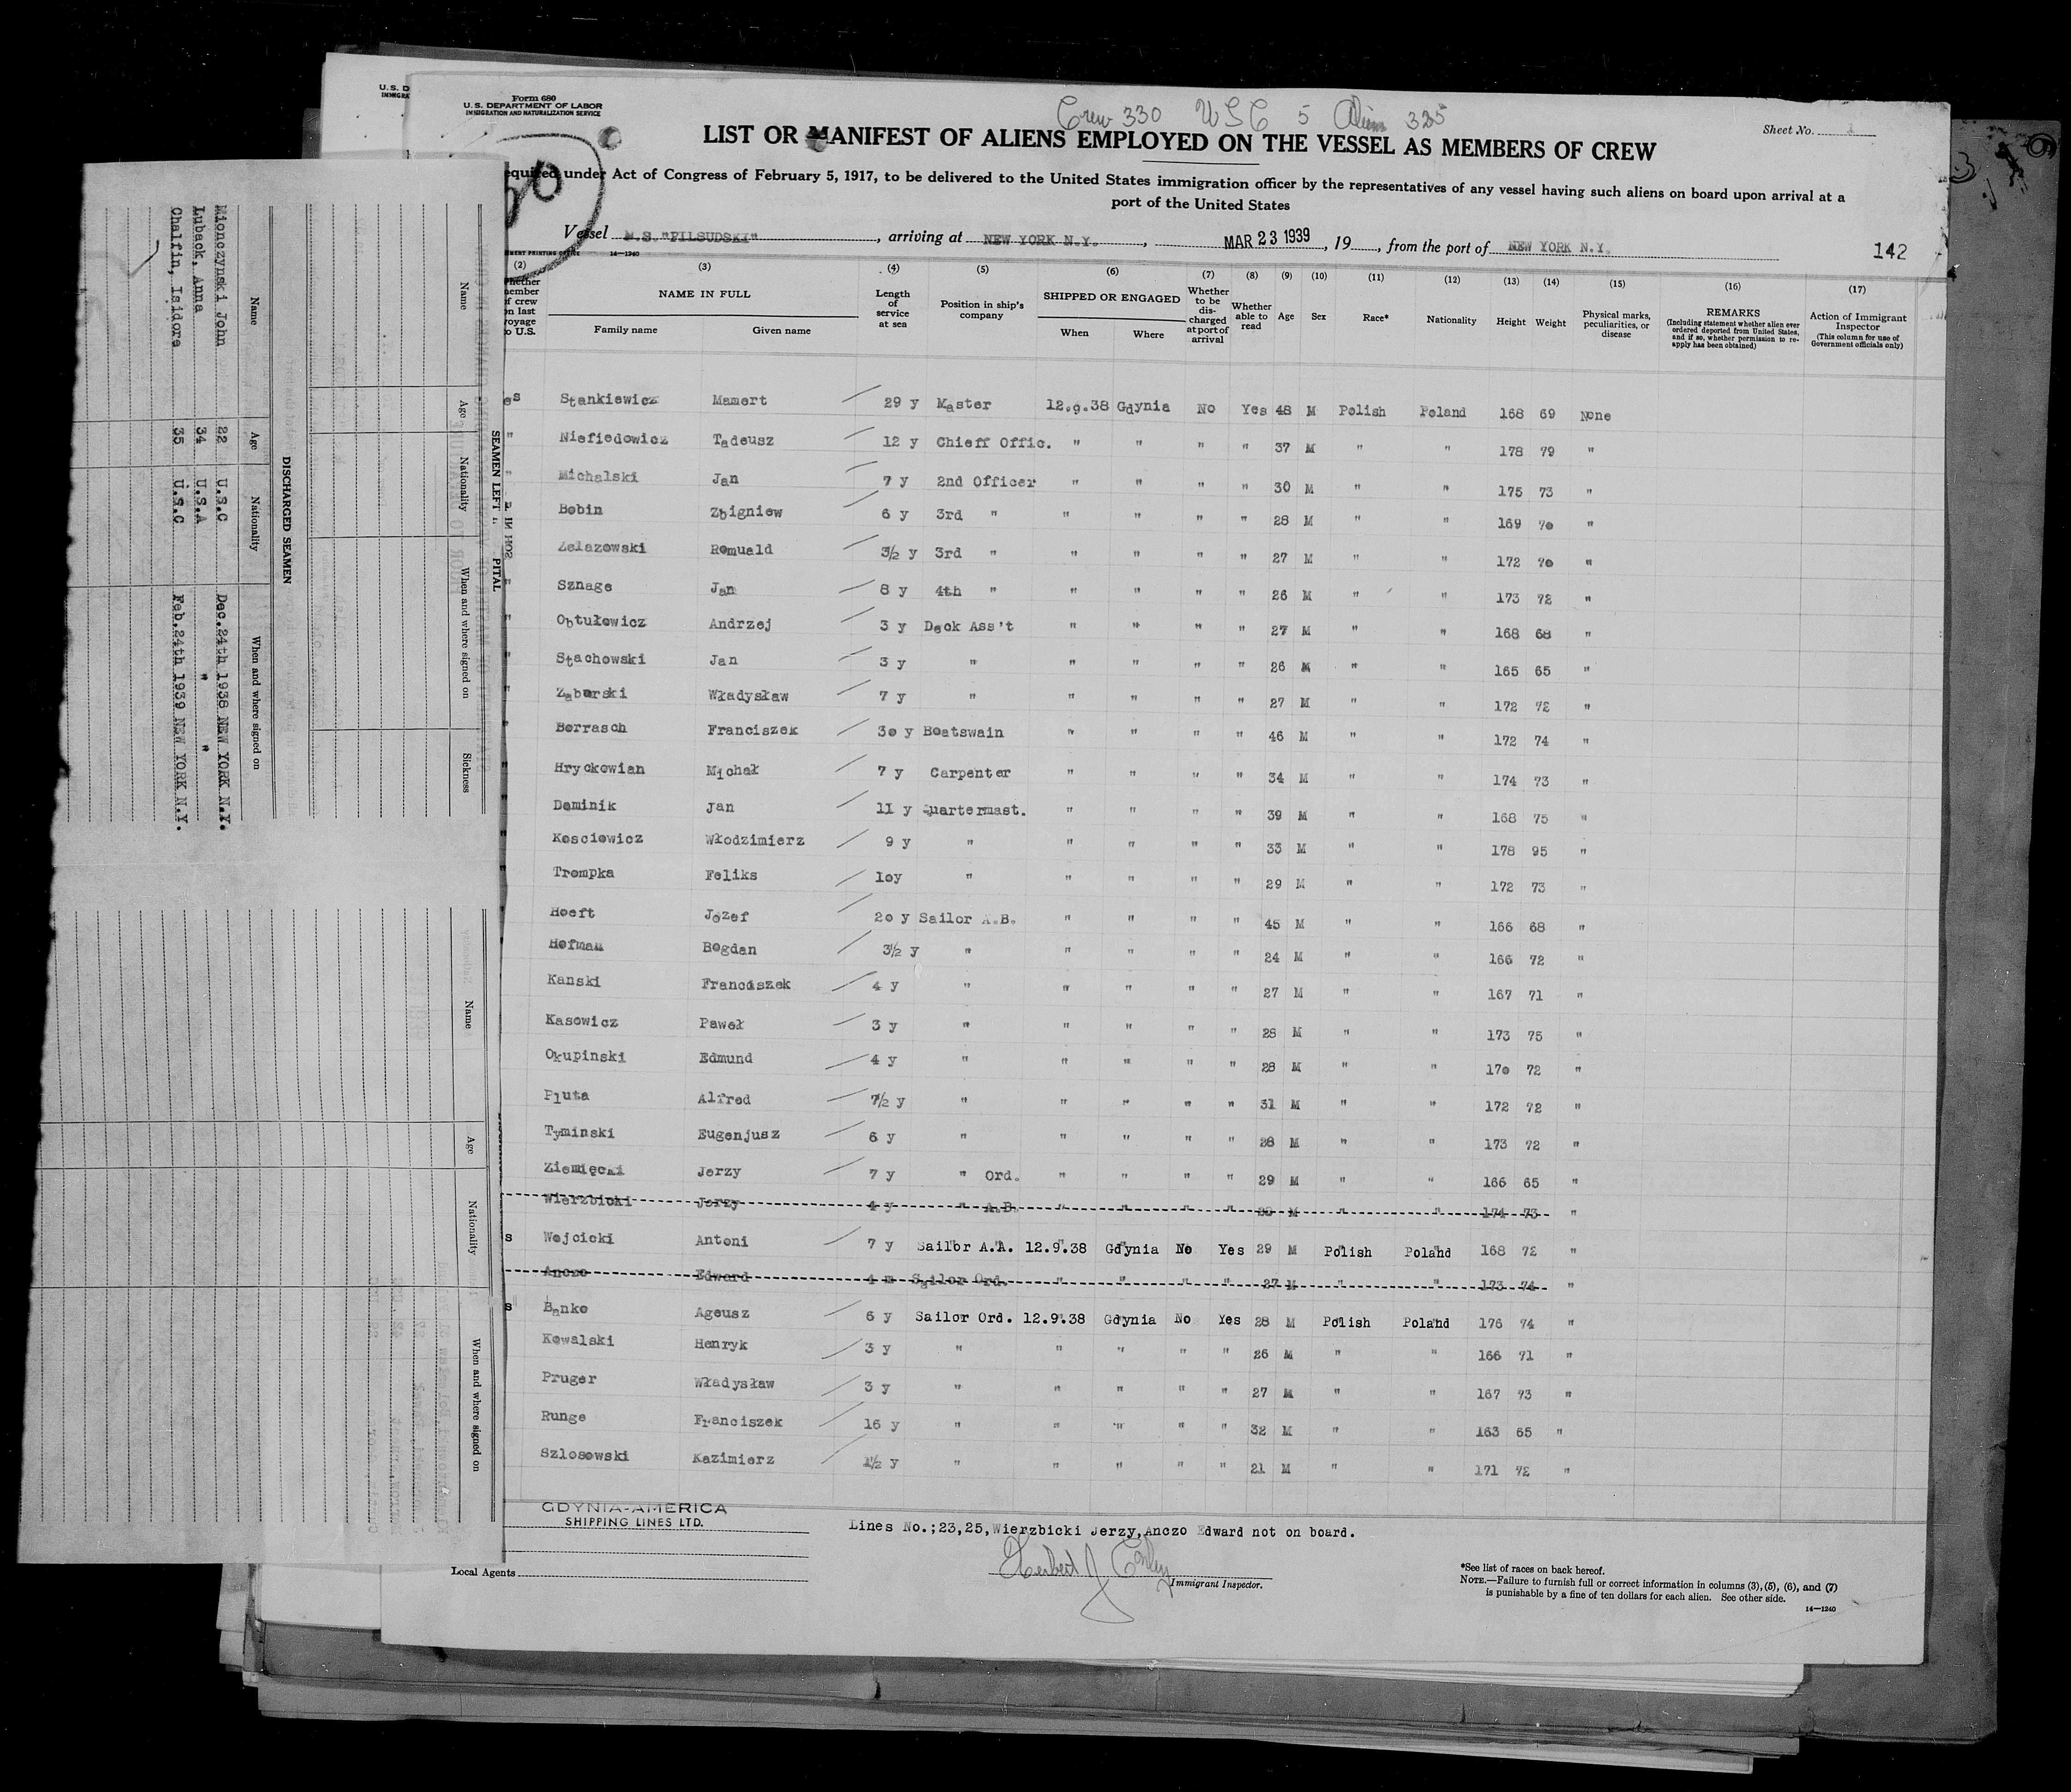 U.S. D
IMMIGRA
Form 680
U.S. DEPARTMENT OF LABOR
IMMIGRATION AND NATURALIZATION SERVICE
Crew 330 USC 5 Alien 325
Sheet No. 1
LIST OR MANIFEST OF ALIENS EMPLOYED ON THE VESSEL AS MEMBERS OF CREW
equired under Act of Congress of February 5, 1917, to be delivered to the United States immigration officer by the representatives of any vessel having such aliens on board upon arrival at a
port of the United States
Vessel M.S."PILSUDSKI", arriving at NEW YORK N.Y., MAR 23 1939, 19, from the port of NEW YORK N.Y.
142
14—1240
(2) (3) (4) (5) (6) (7) (8) (9) (10) (11) (12) (13) (14) (15) (16) (17)
NAME IN FULL
Family name Given name
Length of service at sea
Position in ship's company
SHIPPED OR ENGAGED
When Where
Whether to be discharged at port of arrival
Whether able to read
Age Sex Race* Nationality Height Weight
Physical marks, peculiarities, or disease
REMARKS
(Including statement whether alien ever ordered deported from United States, and if so, whether permission to reapply has been obtained)
Action of Immigrant Inspector
(This column for use of Government officials only)
es Stankiewicz Mamert 29 y Master 12.9.38 Gdynia No Yes 48 M Polish Poland 168 69 None
" Niefiedowicz Tadeusz 12 y Chieff Offic. " " " " 37 M " " 178 79 "
" Michalski Jan 7 y 2nd Officer " " " " 30 M " " 175 73 "
Bobin Zbigniew 6 y 3rd " " " " " 28 M " " 169 70 "
Zelazowski Romuald 3½ y 3rd " " " " " 27 M " " 172 70 "
" Sznage Jan 8 y 4th " " " " " 26 M " " 173 72 "
" Obtułowicz Andrzej 3 y Deck Ass't " " " " 27 M " " 168 68 "
" Stachowski Jan 3 y " " " " " 26 M " " 165 65 "
" Zaborski Władysław 7 y " " " " " 27 M " " 172 72 "
" Borrasch Franciszek 30 y Boatswain " " " " 46 M " " 172 74 "
" Hryckowian Michał 7 y Carpenter " " " " 34 M " " 174 73 "
" Dominik Jan 11 y Quartermast. " " " " 39 M " " 168 75 "
" Kosciewicz Włodzimierz 9 y " " " " " 33 M " " 178 95 "
" Trompka Feliks 10y " " " " " 29 M " " 172 73 "
Hoeft Jozef 20 y Sailor A.B. " " " " 45 M " " 166 68 "
Hofman Bogdan 3½ y " " " " " 24 M " " 166 72 "
Kanski Franciszek 4 y " " " " " 27 M " " 167 71 "
Kasowicz Paweł 3 y " " " " " 28 M " " 173 75 "
Okupinski Edmund 4 y " " " " " 28 M " " 170 72 "
Pluta Alfred 7½ y " " " " " 31 M " " 172 72 "
Tyminski Eugenjusz 6 y " " " " " 28 M " " 173 72 "
Ziemięcki Jerzy 7 y " Ord. " " " " 29 M " " 166 65 "
Wierzbicki Jerzy 4 y " A.B. " " " " M " " 174 73 "
s Wojcicki Antoni 7 y Sailor A.A. 12.9.38 Gdynia No Yes 29 M Polish Poland 168 72 "
Anczo Edward 4 m Sailor Ord. " " " " 27 M " " 173 74 "
s Banko Ageusz 6 y Sailor Ord. 12.9.38 Gdynia No Yes 28 M Polish Poland 176 74 "
Kowalski Henryk 3 y " " " " " 26 M " " 166 71 "
Pruger Władysław 3 y " " " " " 27 M " " 167 73 "
Runge Franciszek 16 y " " " " " 32 M " " 163 65 "
Szlosowski Kazimierz 1½ y " " " " " 21 M " " 171 72 "
GDYNIA-AMERICA
SHIPPING LINES LTD.
Lines No.;23,25,Wierzbicki Jerzy,Anczo Edward not on board.
Local Agents
Immigrant Inspector.
*See list of races on back hereof.
NOTE.—Failure to furnish full or correct information in columns (3), (5), (6), and (7)
is punishable by a fine of ten dollars for each alien. See other side.
14—1240
SEAMEN LEFT IN HOSPITAL
Name Age Nationality When and where signed on Sickness
DISCHARGED SEAMEN
Name Age Nationality When and where signed on
Mionczynski John 22 U.S.C Dec.24th 1938 NEW YORK N.Y.
Luback, Anna 34 U.S.A " "
Chalfin, Isidore 35 U.S.C Feb.24th 1939 NEW YORK N.Y.
Name Age Nationality When and where signed on